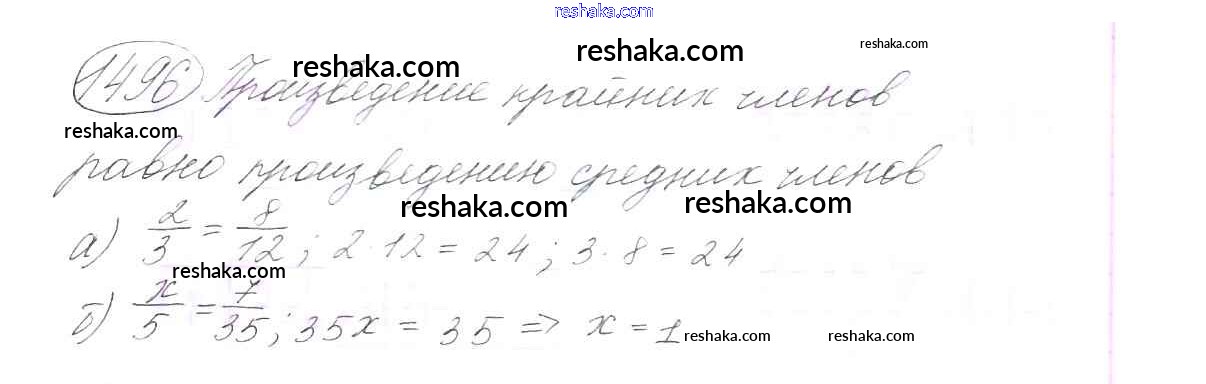 reshaka.com
reshaka.com
reshaka.com
reshaka.com
1496 Произведение крайних членов
reshaka.com
равно произведению средних членов
reshaka.com
reshaka.com
а) 2/3 = 8/12; 2·12 = 24; 3·8 = 24
reshaka.com
б) x/5 = 7/35; 35x = 35 => x = 1
reshaka.com
reshaka.com